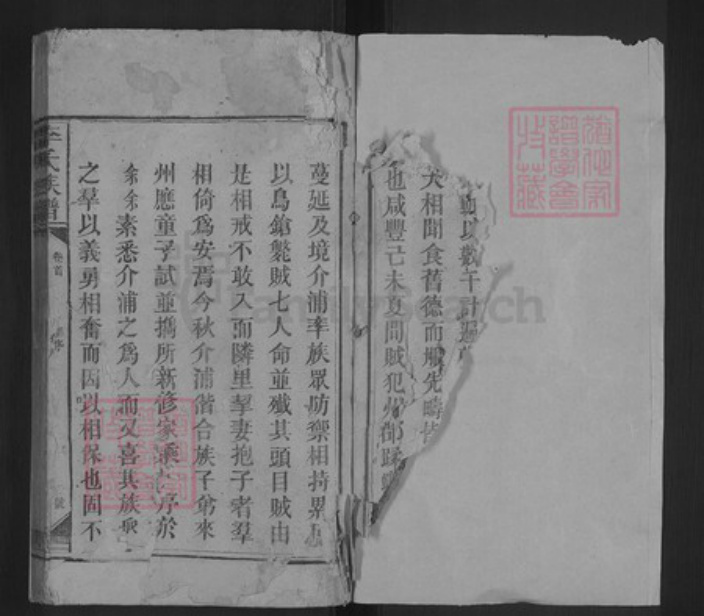 以數千計
犬相聞食舊德而服先疇
也咸豐己未夏間賊犯州郡蹂
蔓延及境介浦率族眾防禦相持累
以鳥鎗斃賊七人命並殲其頭目賊由
是相戒不敢入而隣里挈妻抱子者羣
相倚爲安焉今秋介浦偕合族子弟來
州應童子試並攜所新修家乘序於
余余素悉介浦之爲人而又喜其族
之羣以義勇相奮而因以相保也固不
氏族譜
卷首
FamilySearch